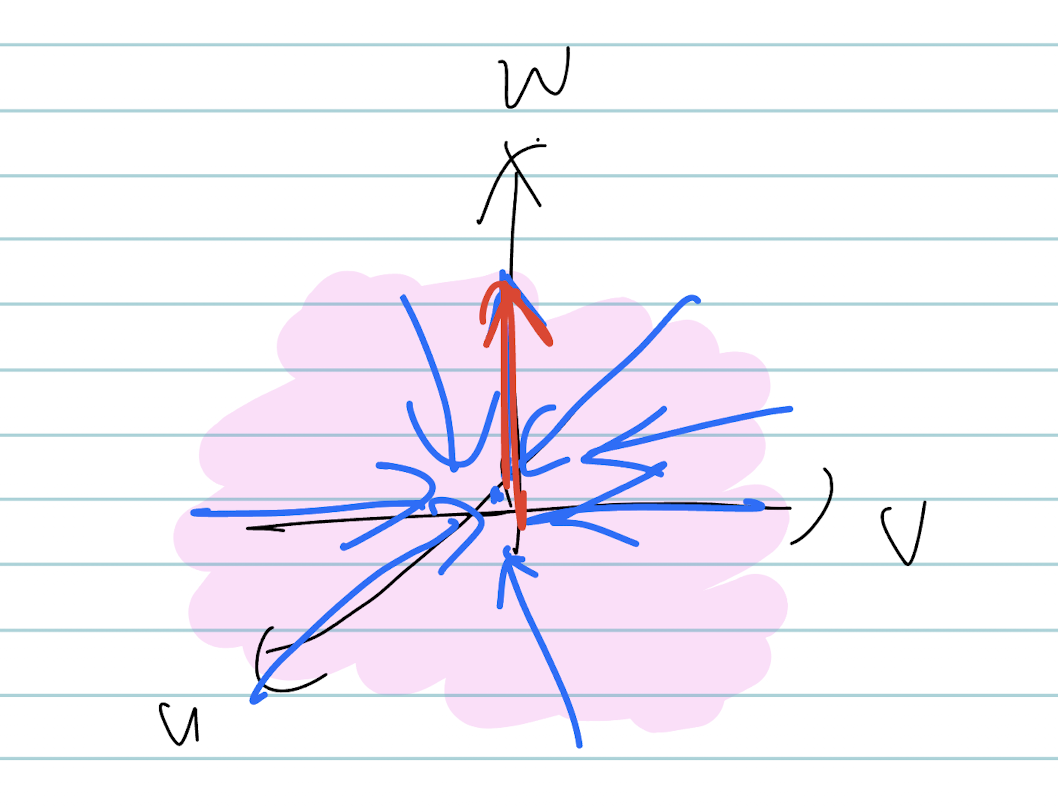 W
V
u